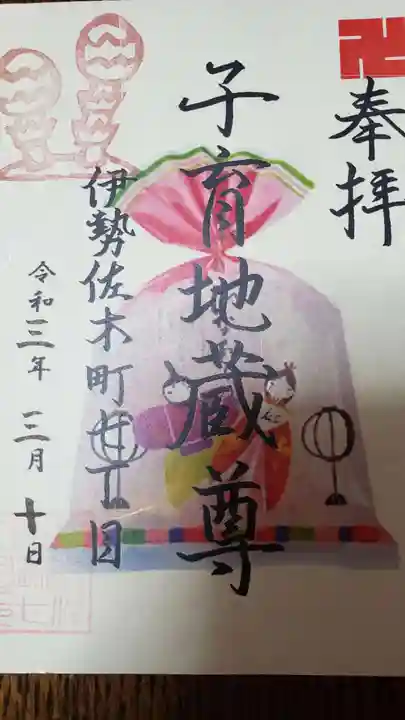 奉拝
子育地蔵尊
伊勢佐木町七丁目
令和三年 三月 十日